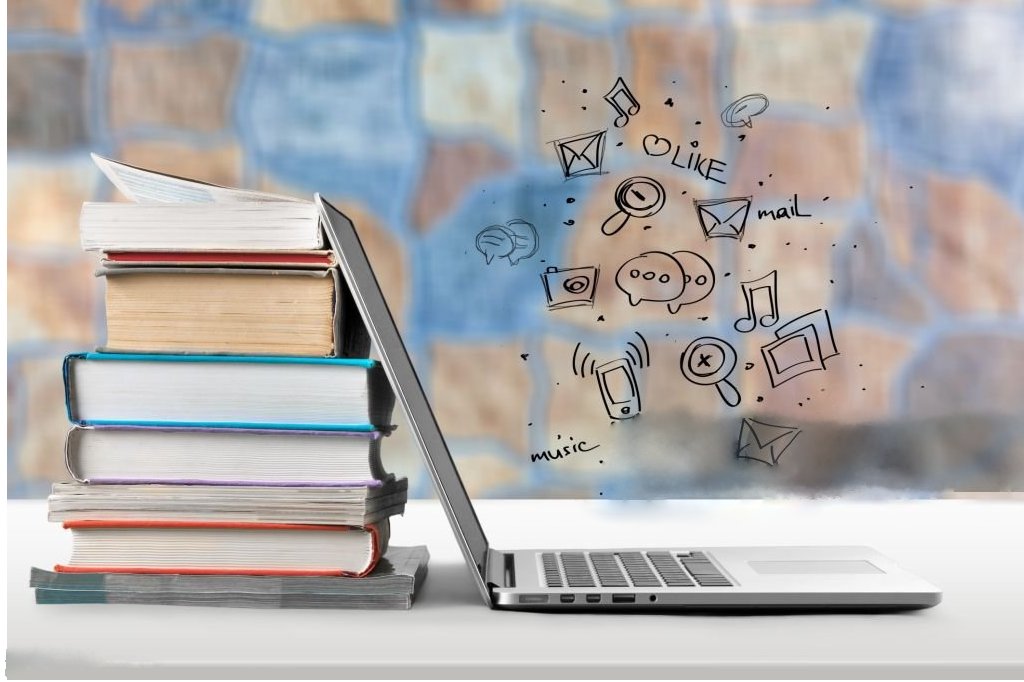 LIKE
maiL
music